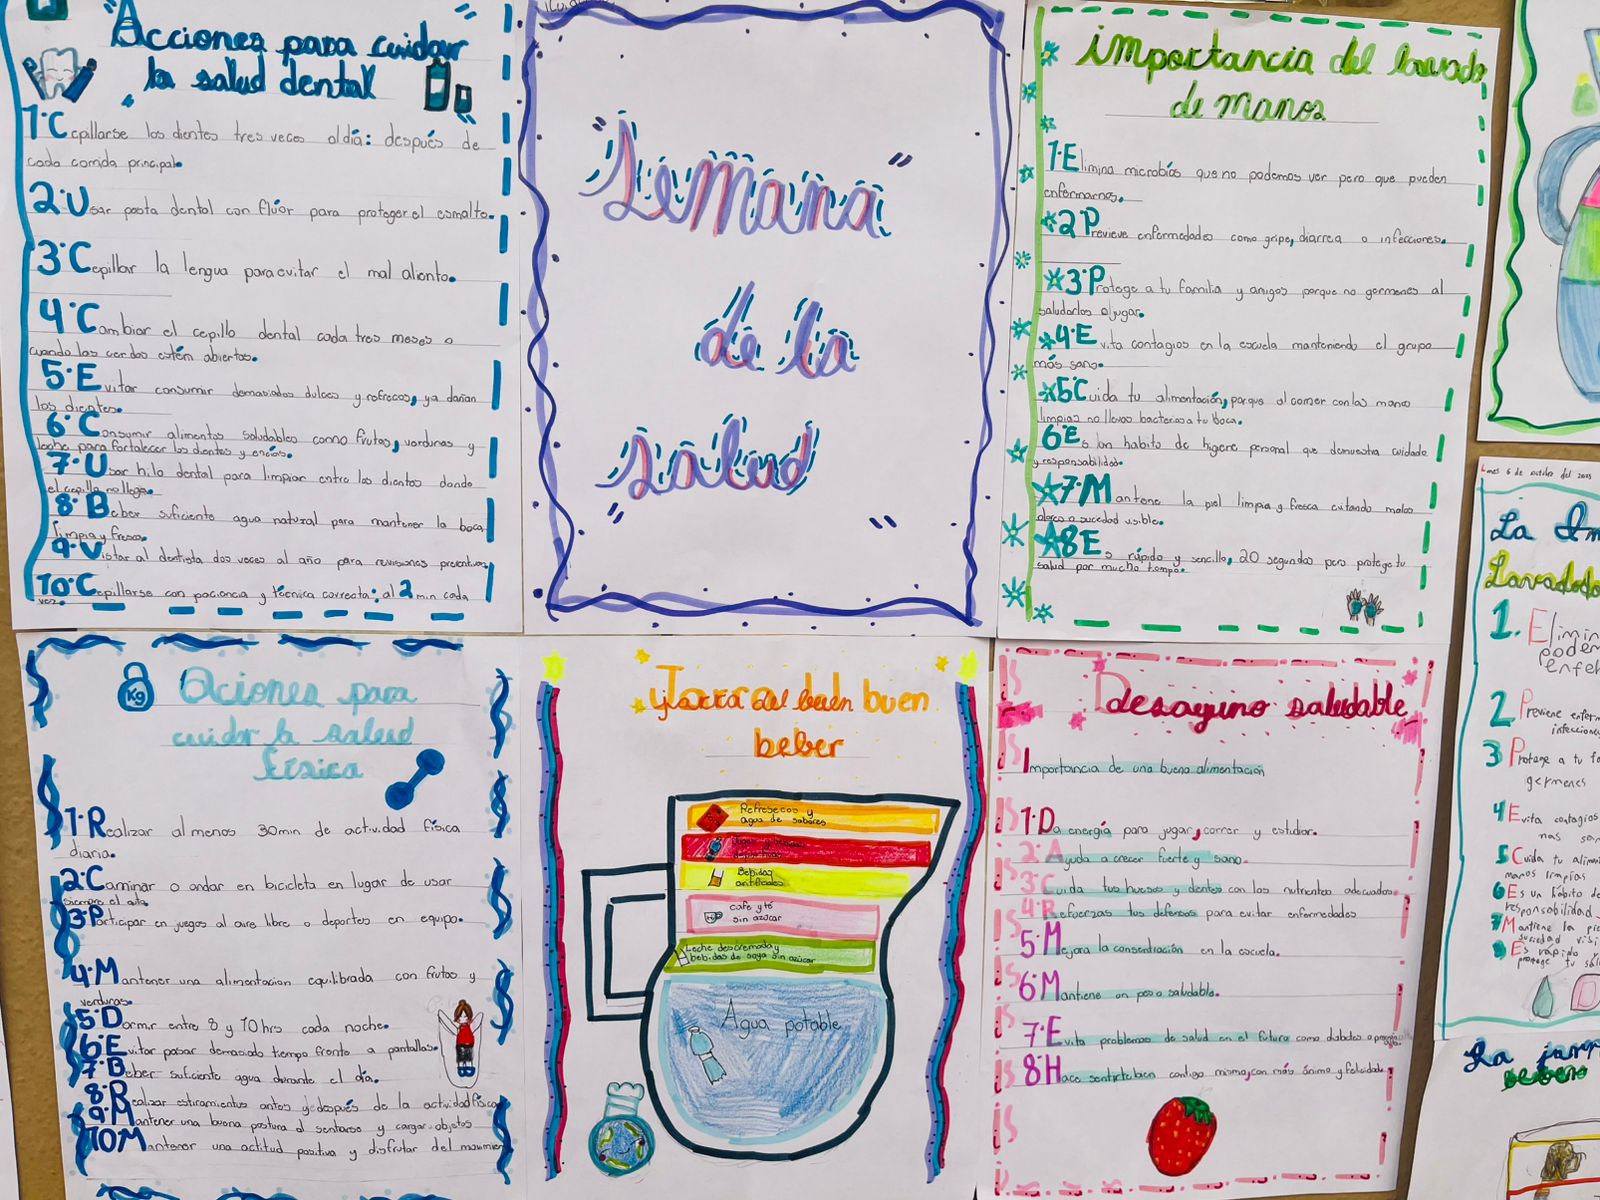 "Acciones para cuidar
la salud dental"
1·Cepillarse los dientes tres veces al día: después de
cada comida principal.
2·Usar pasta dental con flúor para proteger el esmalte.
3·Cepillar la lengua para evitar el mal aliento.
4·Cambiar el cepillo dental cada tres meses o
cuando las cerdas estém abiertas.
5·Evitar consumir demasiados dulces y refrecos, ya dañan
los dientes.
6·Consumir alimentos saludables como frutas, verduras y
leche para fortalecer los dientes y encías.
7·Usar hilo dental para limpiar entre los dientes donde
el cepillo no llega.
8·Beber suficiente agua natural para mantener la boca
limpia y fresca.
9·Vistar al dentista dos veces al año para revisiones
10·Cepillarse con paciencia y técnica correcta: al 2 min cada
vez.
"Semana"
de la
salud
"importancia del lavado
de manos
1·Elimina microbios que no podemos ver pero que pueden
enfermarnos.
2·Previene enfermedades como gripe, diarrea o infecciones.
3·Protege a tu familia y amigos porque no germenes al
saludarlos o jugar.
4·Evita contagios en la escuela manteniendo el grupo
más sano.
5·Cuida tu alimentación, porque al comer con las manos
limpias no llevas bacterias a tu boca.
6·Es un habito de higiene personal que demuestra cuidado
y responsabilidad.
7·Mantiene la piel limpia y fresca evitando malos
olores o suciedad visible.
8·Es rápido y sencillo, 20 segundos pero protege tu
salud por mucho tiempo.
Kg
Aciones para
cuidar la salud
física
1·Realizar al menos 30min de actividad física
diaria.
2·Caminar o andar en bicicleta en lugar de usar
siempre el auto.
3·Participar en juegos al aire libre o deportes en equipo.
4·Mantener una alimentacion equilibrada con frutas y
verduras.
5·Dormir entre 8 y 10 hrs cada noche.
6·Evitar pasar demasiado tiempo frente a pantallas.
7·Beber suficiente agua durante el día.
8·Realizar estiramientos antes y después de la actividad física
9·Mantener una buena postura al sentarse y cargar objetos
10·Mantener una actitud positiva y disfrutar del
Jarra del buen
beber
Refresecos y
agua de sabores
Jugos y bebidas
Bebidas
artificiales
cafe y té
sin azúcar
Leche descremada y
bebidas de soya sin azúcar
Agua potable
Desayuno saludable
Importancia de una buena alimentación
1·Da energía para jugar, correr y estudiar.
2·Ayuda a crecer fuerte y sano.
3·Cuida tus huesos y dientes con los nutrientes adecuados
4·Refuerzas tus defensas para evitar enfermedades
5·Mejora la consentración en la escuela.
6·Mantiene un peso saludable.
7·Evita problemas de salud en el futuro como diabetes o
8·Hace sentirte bien contigo misma, con más ánimo y felicidad.
Lunes 6 de octubre del 2025
La Im
Lavadodo
1. Elimin
podem
enfe
2 Previene enferm
infeccion
3 Protege a tu fa
germenes
4 Evita contagios
mas san
5 Cuida tu alime
manos limpias
6 Es un hábito de
responsabilidad
7 Mantiene la pie
suciedad visi
8 Es rápido
protege tu sal
La jarr